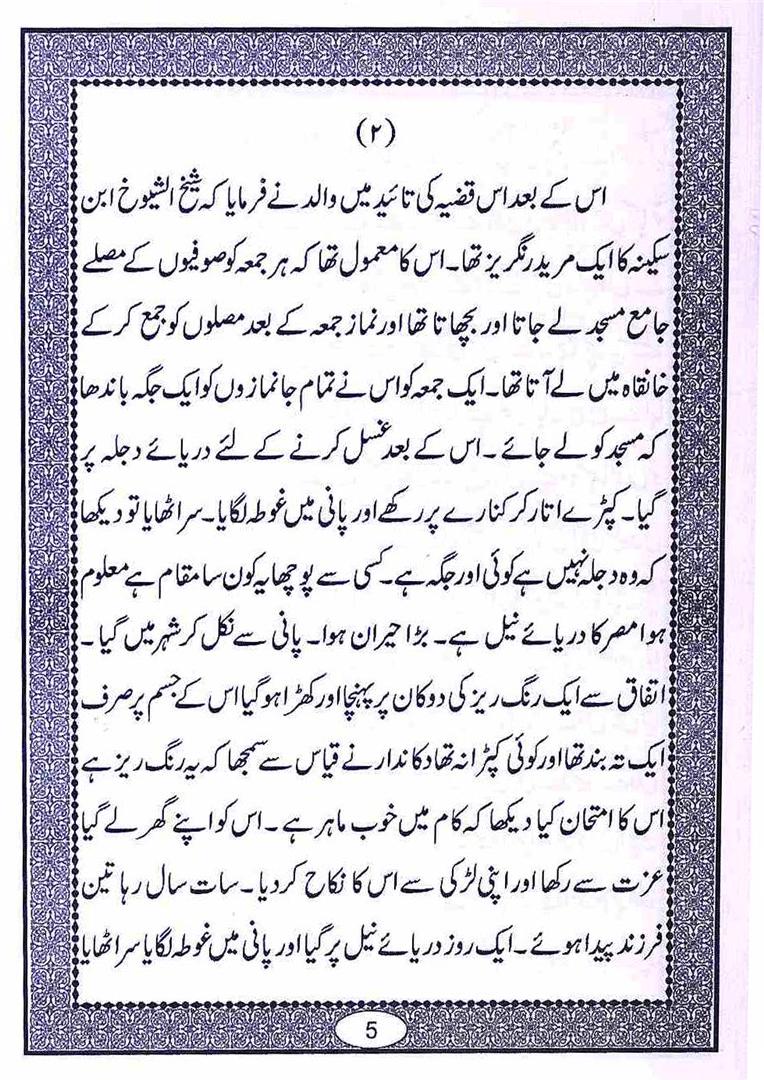 (۲)
اس کے بعد اس قضیہ کی تائید میں والد نے فرمایا کہ شیخ الشیوخ ابن
سکینہ کا ایک مرید رنگریز تھا۔ اس کا معمول تھا کہ ہر جمعہ کو صوفیوں کے مصلے
جامع مسجد لے جاتا اور بچھاتا تھا اور نماز جمعہ کے بعد مصلوں کو جمع کر کے
خانقاہ میں لے آتا تھا۔ ایک جمعہ کو اس نے تمام جانمازوں کو ایک جگہ باندھا
کہ مسجد کو لے جائے۔ اس کے بعد غسل کرنے کے لئے دریائے دجلہ پر
گیا۔ کپڑے اتار کر کنارے پر رکھے اور پانی میں غوطہ لگایا۔ سر اٹھایا تو دیکھا
کہ وہ دجلہ نہیں ہے کوئی اور جگہ ہے۔ کسی سے پوچھا یہ کون سا مقام ہے معلوم
ہوا مصر کا دریائے نیل ہے۔ بڑا حیران ہوا۔ پانی سے نکل کر شہر میں گیا۔
اتفاق سے ایک رنگ ریز کی دوکان پر پہنچا اور کھڑا ہو گیا اس کے جسم پر صرف
ایک تہ بند تھا اور کوئی کپڑا نہ تھا دکاندار نے قیاس سے سمجھا کہ یہ رنگ ریز ہے
اس کا امتحان کیا دیکھا کہ کام میں خوب ماہر ہے۔ اس کو اپنے گھر لے گیا
عزت سے رکھا اور اپنی لڑکی سے اس کا نکاح کر دیا۔ سات سال رہا تین
فرزند پیدا ہوئے۔ ایک روز دریائے نیل پر گیا اور پانی میں غوطہ لگایا سر اٹھایا
5